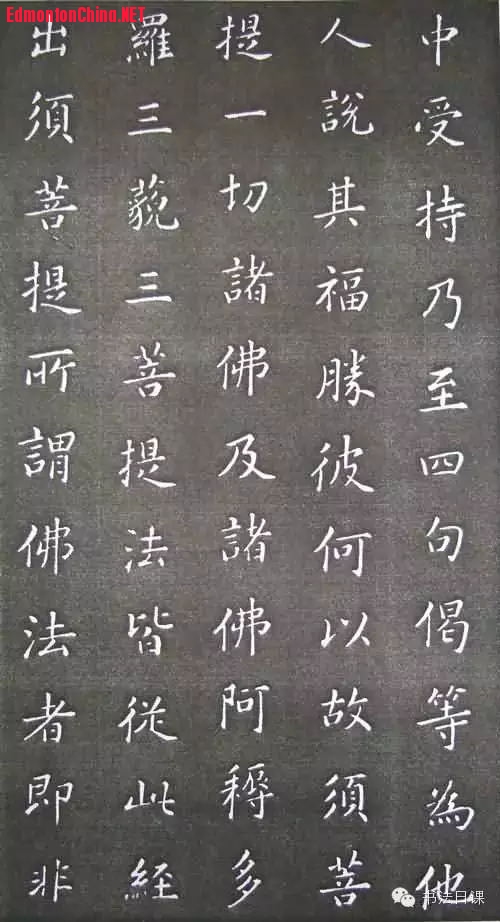 EdmontonChina.NET
中受持乃至四句偈等為他
人說其福勝彼何以故須菩
提一切諸佛及諸佛阿耨多
羅三藐三菩提法皆從此經
出須菩提所謂佛法者即非
书法日课